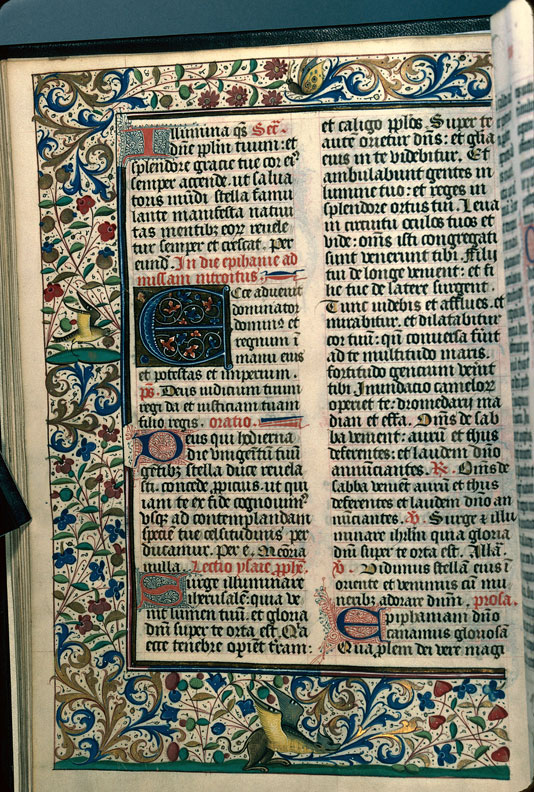 Illumina qs Secr.
dne pplm tuum: et
splendore gracie tue cor ei9
semper accende. ut salua
toris mudi stella famu
lante manifesta natiui
tas mentibz eor reuele
tur semper et crescat. Per
eund. In die epiphanie ad
missam introitus
Ecce aduenit
dominator
domin9 et
regnum i
manu eius
et potestas et imperium.
ps. Deus iudicium tuum
regi da et iusticiam tuam
filio regis. oratio.
Deus qui hodierna
die vnigenitu tuu
getibz stella duce reuela
sti. concede ppicius. ut qui
iam te ex fide cognouim9
vsqz ad contemplandam
specie tue celsitudinis per
ducamur. Per e. Memoria
nulla. Lectio ysaie pphe.
Surge illuminare
iherusalem: quia ve
nit lumen tuu. et gloria
dni super te orta est. Q'a
ecce tenebre opiet terram:
et caligo pplos. Super te
aute orietur dns: et glia
eius in te videbitur. Et
ambulabunt gentes in
lumine tuo: et reges in
splendore ortus tui. Leua
in circuitu oculos tuos et
vide: oms isti congregati
sunt venerunt tibi. ffilij
tui de longe venient: et fi
lie tue de latere surgent.
Tunc videbis et afflues. et
mirabitur. et dilatabitur
cor tuu: qn conuersa fuit
ad te multitudo maris.
fortitudo gencium venit
tibi. Inundacio camelor
operiet te: dromedarij ma
dian et effa. Oms de sab
ba venient: auru et thus
deferentes: et laudem dno
annuciantes. R. Oms de
sabba venient auru et thus
deferentes et laudem dno an
nuciantes. v. Surge z illu
minare ihrlm quia gloria
dni super te orta est. Alla.
v. Vidimus stellam eius i
oriente et venimus cu mu
neribz adorare dnm. prosa.
Epiphaniam dno
canamus gloriosa
Qua plem dei vere magi